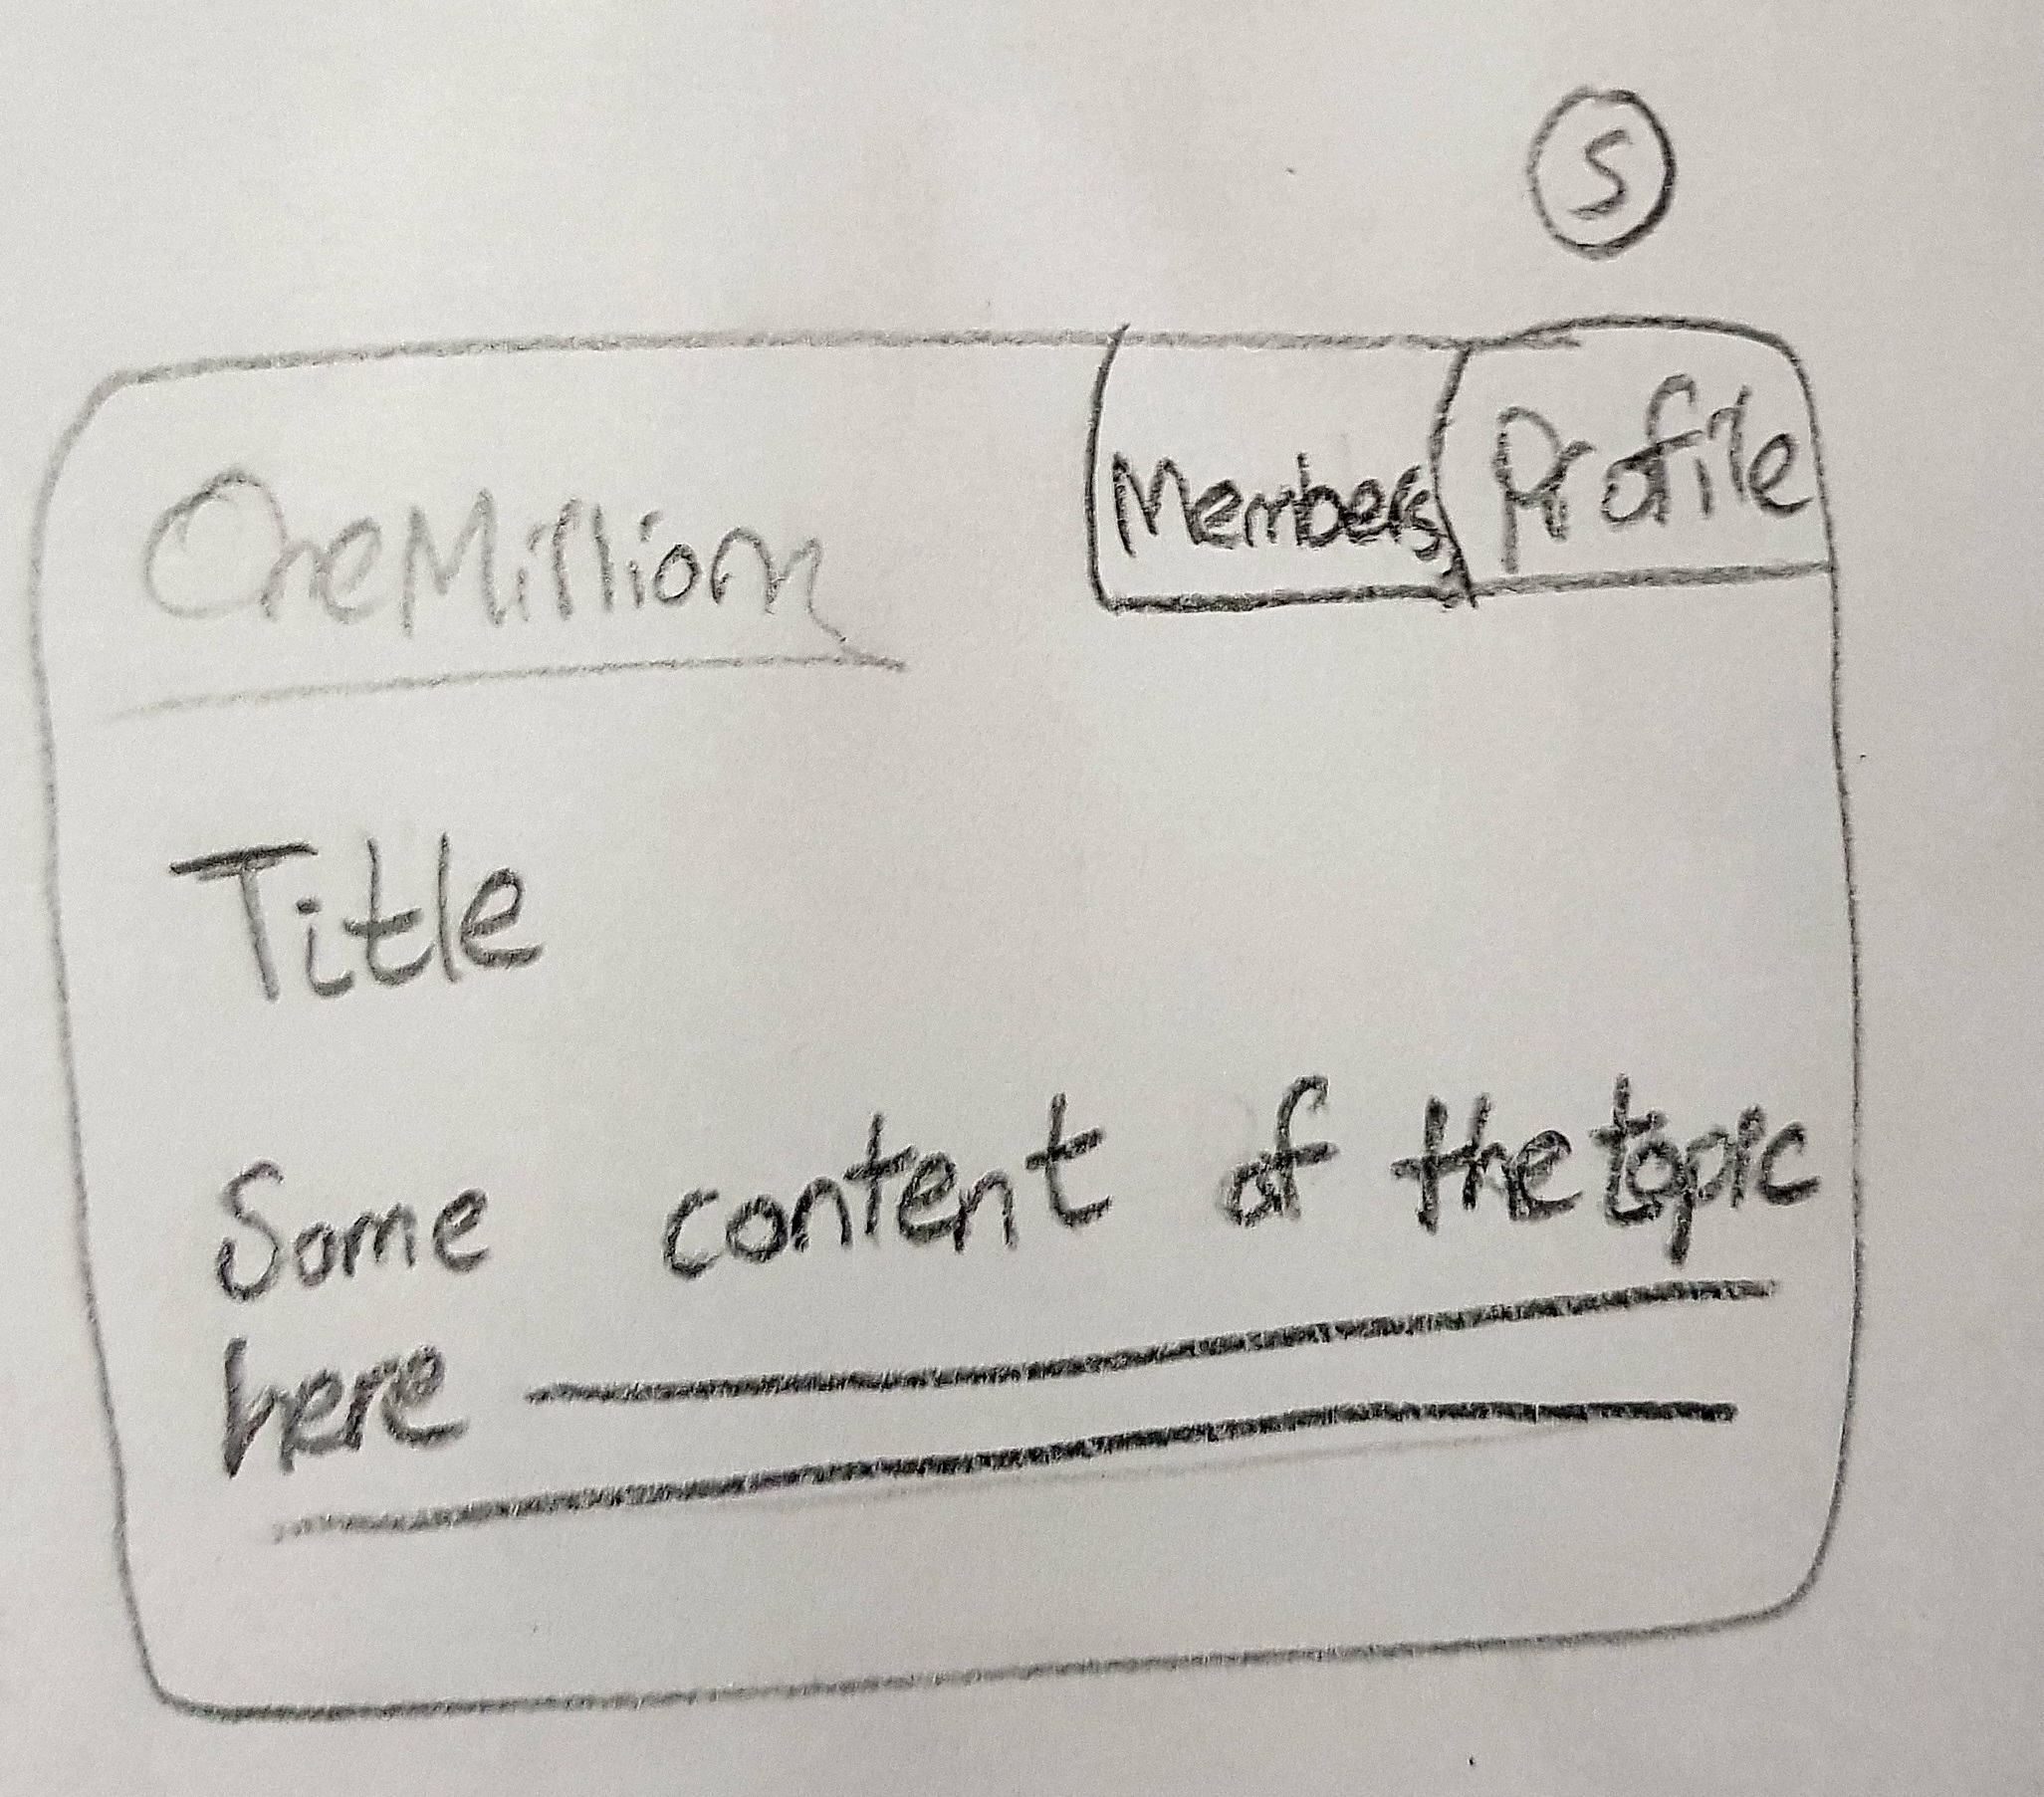 S
OneMillion
Members Profile
Title
Some content of the topic
here